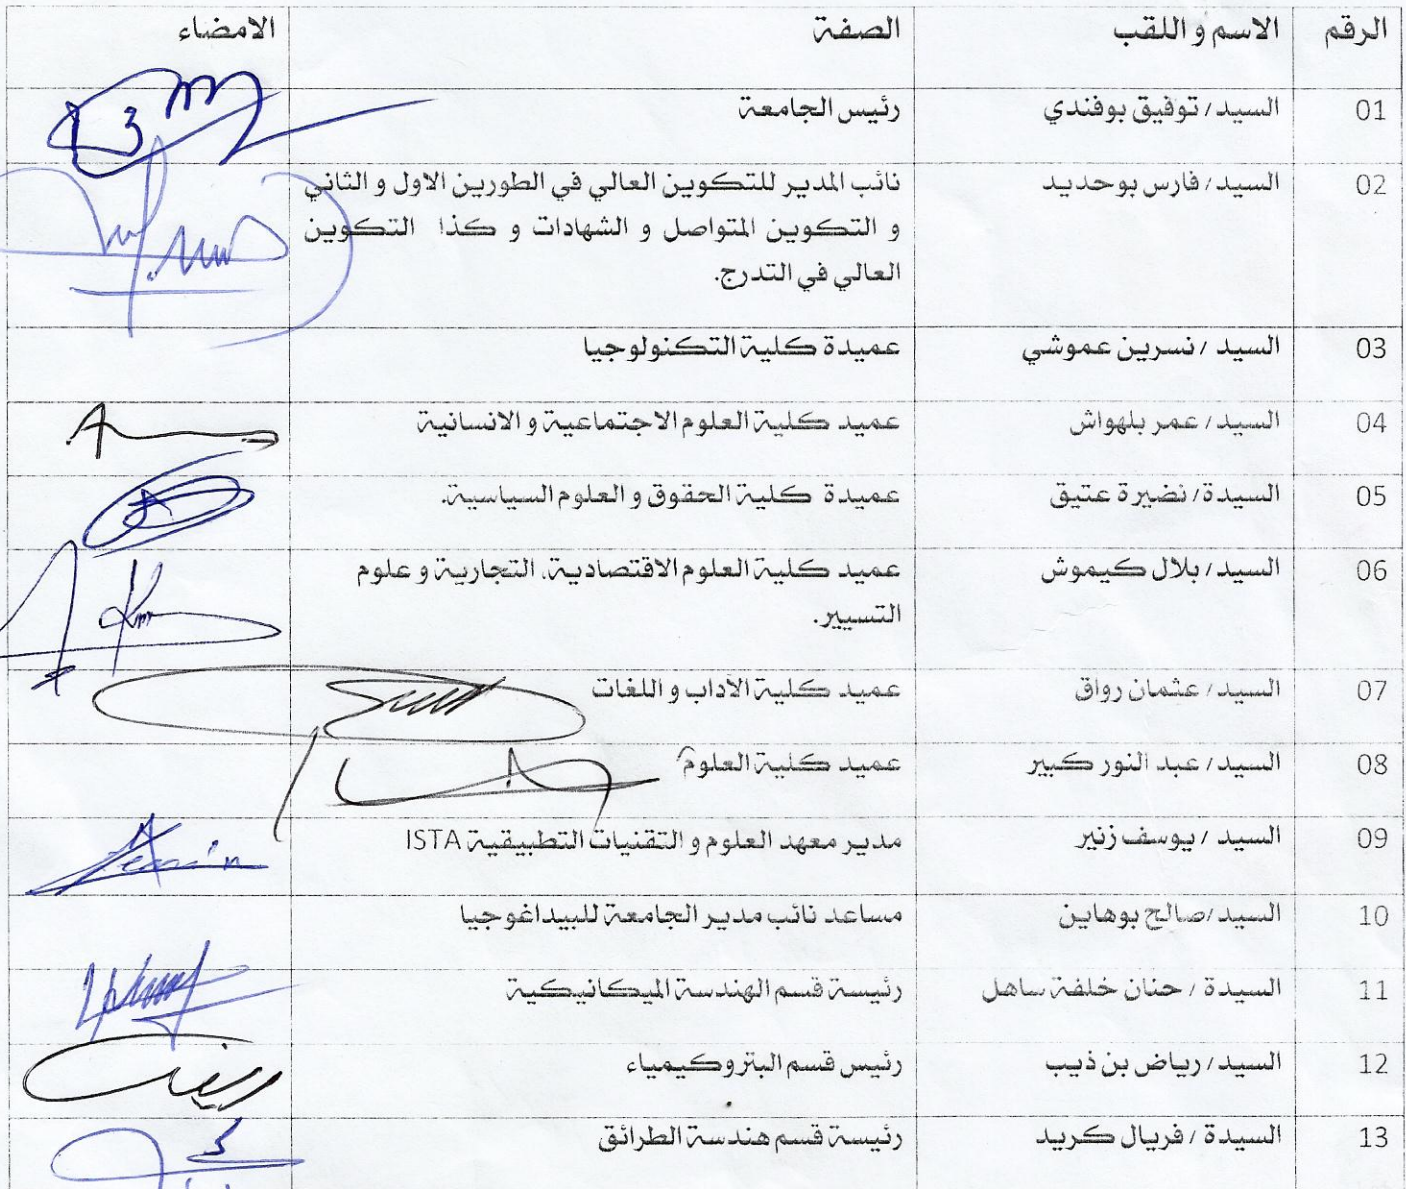 الرقم الاسم و اللقب الصفة الامضاء
01 السيد/ توفيق بوفندي رئيس الجامعة
02 السيد/ فارس بوحديد نائب المدير للتكوين العالي في الطورين الاول و الثاني
و التكوين المتواصل و الشهادات و كذا التكوين
العالي في التدرج.
03 السيد /نسرين عموشي عميدة كلية التكنولوجيا
04 السيد/ عمر بلهواش عميد كلية العلوم الاجتماعية و الانسانية
05 السيدة/ نضيرة عتيق عميدة كلية الحقوق و العلوم السياسية.
06 السيد/ بلال كيموش عميد كلية العلوم الاقتصادية، التجارية و علوم
التسيير.
07 السيد/ عثمان رواق عميد كلية الآداب و اللغات
08 السيد/ عبد النور كبير عميد كلية العلوم
09 السيد /يوسف زنير مدير معهد العلوم و التقنيات التطبيقية ISTA
10 السيد/صالح بوهاين مساعد نائب مدير الجامعة للبيداغوجيا
11 السيدة / حنان خلفة ساهل رئيسة قسم الهندسة الميكانيكية
12 السيد/ رياض بن ذيب رئيس قسم البتروكيمياء
13 السيدة /فريال كريد رئيسة قسم هندسة الطرائق